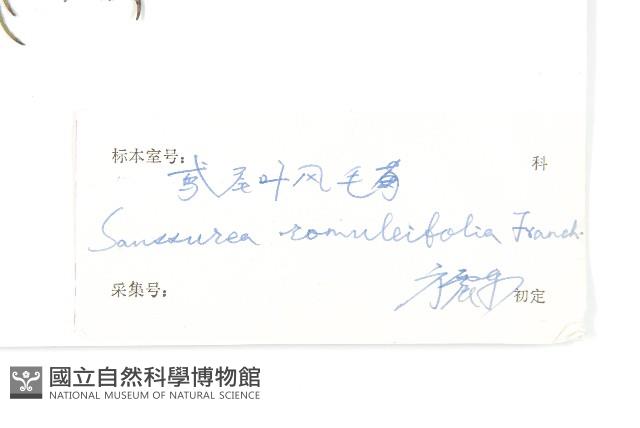 标本室号:
科
鸢尾叶风毛菊
Saussurea romuleifolia Franch.
采集号:
初定
國立自然科學博物館
NATIONAL MUSEUM OF NATURAL SCIENCE